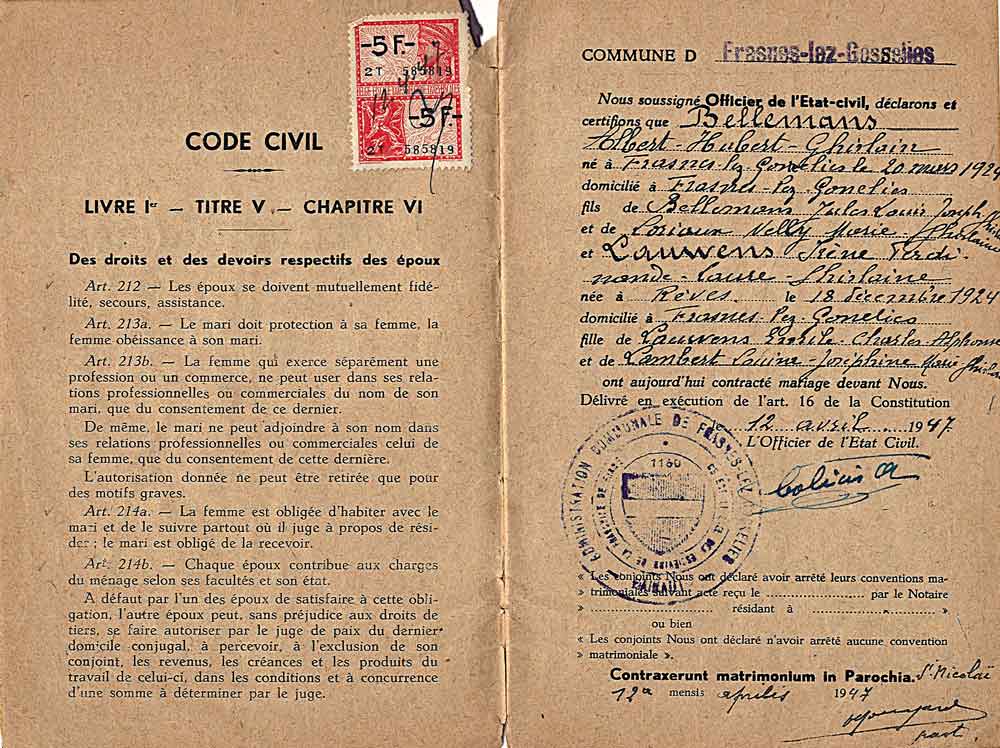 -5 F.-
2 T 585819
-5 F.-
2 T 585819
CODE CIVIL
LIVRE Iᵉʳ — TITRE V — CHAPITRE VI
Des droits et des devoirs respectifs des époux
Art. 212 — Les époux se doivent mutuellement fidé-
lité, secours, assistance.
Art. 213a. — Le mari doit protection à sa femme, la
femme obéissance à son mari.
Art. 213b. — La femme qui exerce séparément une
profession ou un commerce, ne peut user dans ses rela-
tions professionnelles ou commerciales du nom de son
mari, que du consentement de ce dernier.
De même, le mari ne peut adjoindre à son nom dans
ses relations professionnelles ou commerciales celui de
sa femme, que du consentement de cette dernière.
L'autorisation donnée ne peut être retirée que pour
des motifs graves.
Art. 214a. — La femme est obligée d'habiter avec le
mari et de le suivre partout où il juge à propos de rési-
der : le mari est obligé de la recevoir.
Art. 214b. — Chaque époux contribue aux charges
du ménage selon ses facultés et son état.
A défaut par l'un des époux de satisfaire à cette obli-
gation, l'autre époux peut, sans préjudice aux droits de
tiers, se faire autoriser par le juge de paix du dernier
domicile conjugal, à percevoir, à l'exclusion de son
conjoint, les revenus, les créances et les produits du
travail de celui-ci, dans les conditions et à concurrence
d'une somme à déterminer par le juge.
COMMUNE D Frasnes-lez-Gosselies
Nous soussigné Officier de l'Etat-civil, déclarons et
certifions que Bellemans
Albert-Hubert-Ghislain
né à Frasnes-lez-Gosselies le 20 mars 1924
domicilié à Frasnes-lez-Gosselies
fils de Bellemans Jules Louis Joseph
et de Lorioux Nelly Marie-Ghislaine
et Lauwens Irène Ferdi-
nande-Laure-Ghislaine
née à Rèves le 18 décembre 1924
domicilié à Frasnes-lez-Gosselies
fille de Lauwens Emile-Charles Alphonse
et de Lambert Joséphine Marie
ont aujourd'hui contracté mariage devant Nous.
Délivré en exécution de l'art. 16 de la Constitution
le 12 avril 1947
L'Officier de l'Etat Civil.
ADMINISTRATION COMMUNALE DE FRASNES-LEZ-GOSSELIES
1160
HAINAUT
« Les conjoints Nous ont déclaré avoir arrêté leurs conventions ma-
» trimoniales suivant acte reçu le par le Notaire
» résidant à »
ou bien
« Les conjoints Nous ont déclaré n'avoir arrêté aucune convention
» matrimoniale ».
Contraxerunt matrimonium in Parochia. St Nicolaï
12a mensis aprilis 1947